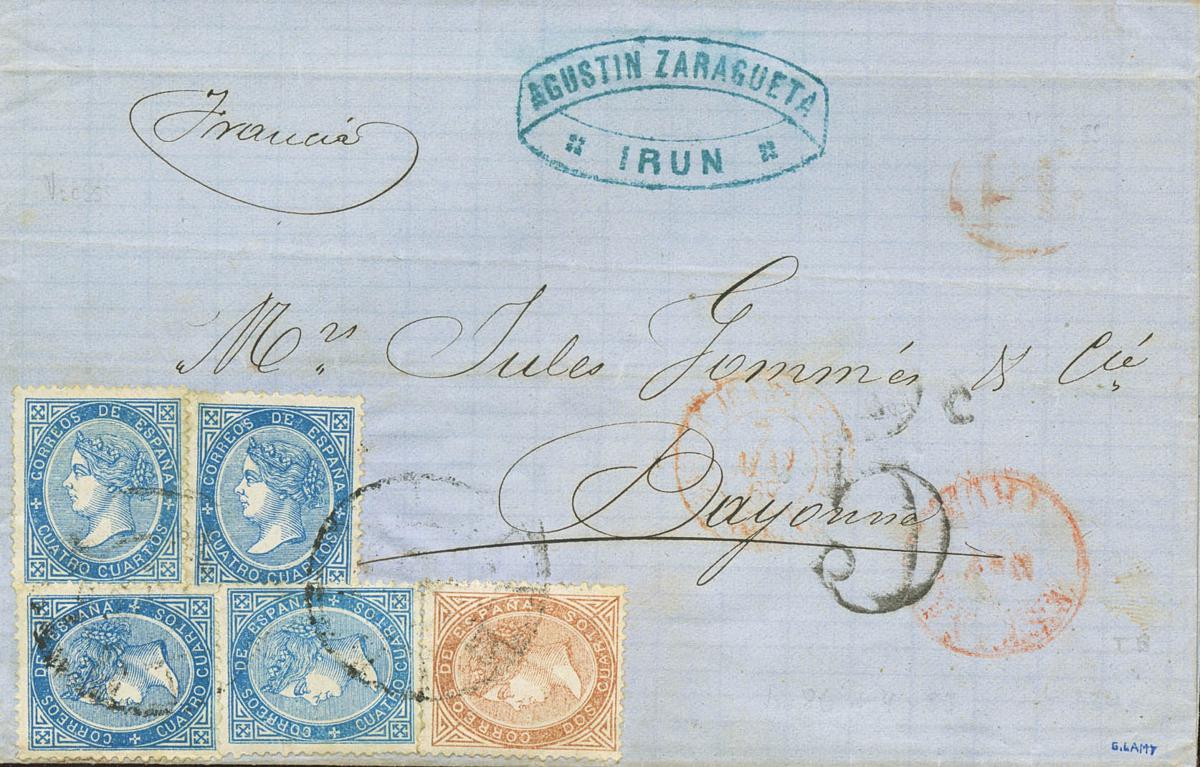 Francia
AGUSTIN ZARAGUETA
IRUN
Mrs Jules Gommés & Cie
Bayonne
CORREOS DE ESPAÑA
CUATRO CUARTOS
CORREOS DE ESPAÑA
CUATRO CUARTOS
CORREOS DE ESPAÑA
CUATRO CUARTOS
CORREOS DE ESPAÑA
CUATRO CUARTOS
CORREOS DE ESPAÑA
DOS CUARTOS
G.LAMY